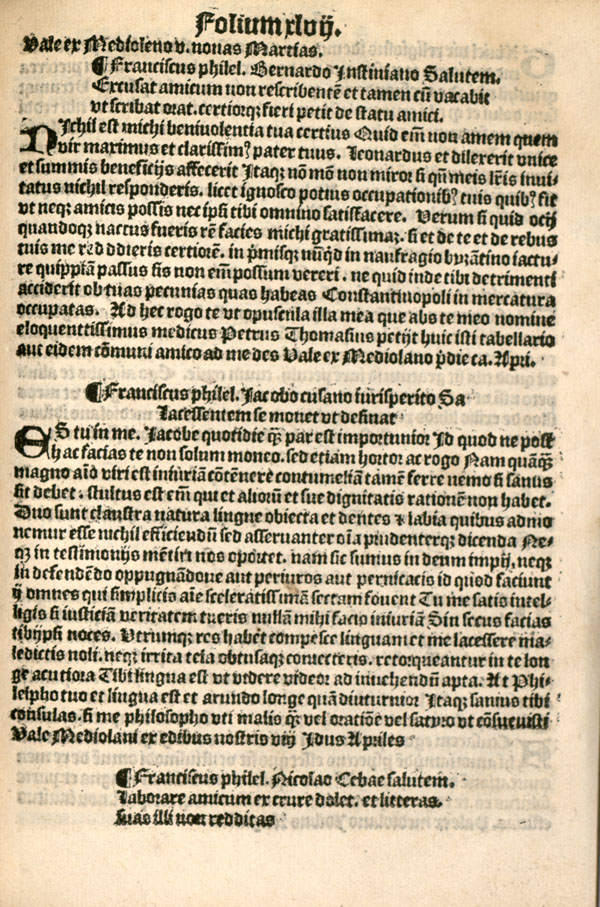 Folium xlvij.
Vale ex Medioleno v. nonas Martias.
¶Franciscus philel. Bernardo Justiniano Salutem.
Excusat amicum non rescribentē et tamen cū vacabit
vt scribat orat. certiorqꝫ fieri petit de statu amici.
NIchil est michi beniuolentia tua certius Quid em̄ non amem quem
vir maximus et clarissimꝰ pater tuus. Leonardus et dilexerit vnice
et summis beneficijs affecerit Itaqꝫ nō mō non miror si qn̄ meis lr̄is inui-
tatus nichil responderis. licet ignosco potius occupationibꝰ tuis quibꝰ fit
vt neqꝫ amicis possis nec ipsi tibi omnino satisfacere. Verum si quid ocij
quandoqꝫ nactus fueris rē facies michi gratissimaꝫ. si et de te et de rebus
tuis me red ddieris certiorē. in p̄misqꝫ nunqd in naufragio byzātino iactu-
re quippiā passus sis non em̄ possum vereri. ne quid inde tibi detrimenti
acciderit ob tuas pecunias quas habeas Constantinopoli in mercatura
occupatas. Ad hec rogo te vt opuscula illa mea que abs te meo nomine
eloquenttissimus medicus Petrus Thomasius petijt huic isti tabellario
aut eidem cōmuni amico ad me des Vale ex Mediolano p̄die ca. Apri.
¶Franciscus philel. Jacobo cusano iurisperito Sa
Lacessentem se monet vt desinat
ES tu in me. Jacobe quotidie qꝫ par est importunior Id quod ne post
hac facias te non solum moneo. sed etiam hortor ac rogo Nam quāqꝫ
magno aīo viri est iniuriā cōtēnere contumeliā tamē ferre nemo si sanus
sit debet. stultus est em̄ qui et alioꝝ et sue dignitatis rationē non habet.
Duo sunt claustra natura lingue obiecta et dentes ⁊ labia quibus admo
nemur esse nichil efficiendū sed asseruanter oīa prudenterqꝫ dicenda Ne-
qꝫ in testimonijs mētiri nos oportet. nam sic sumus in deum impij. neqꝫ
in defendēdo oppugnādoue aut periuros aut pernicacis id quod faciunt
ij omnes qui simplicis aīe sceleratissimā sectam fouent Tu me satis intel-
ligis si iusticiā veritatem tueris nullā mihi facio iniuriā Sin secus facias
tibijpsi noces. Vtrumqꝫ res habēt compesce linguam et me lacessere ma-
ledictis noli. neqꝫ irrita tela obtusaqꝫ coniecteris. retorqueantur in te lon
ge acutiora Tibi lingua est vt videre videor ad inuehendū apta. At Phi-
lelpho tuo et lingua est et arundo longe quā diuturnior Itaqꝫ sanius tibi
consulas. si me philosopho vti malis qꝫ vel oratiōe vel satyro vt cōsueuisti
Vale Mediolani ex edibus nostris viij Idus Apriles
¶Franciscus philel. Nicolao Cebae salutem.
Laborare amicum ex crure dolet. et litteras.
suas illi non redditas